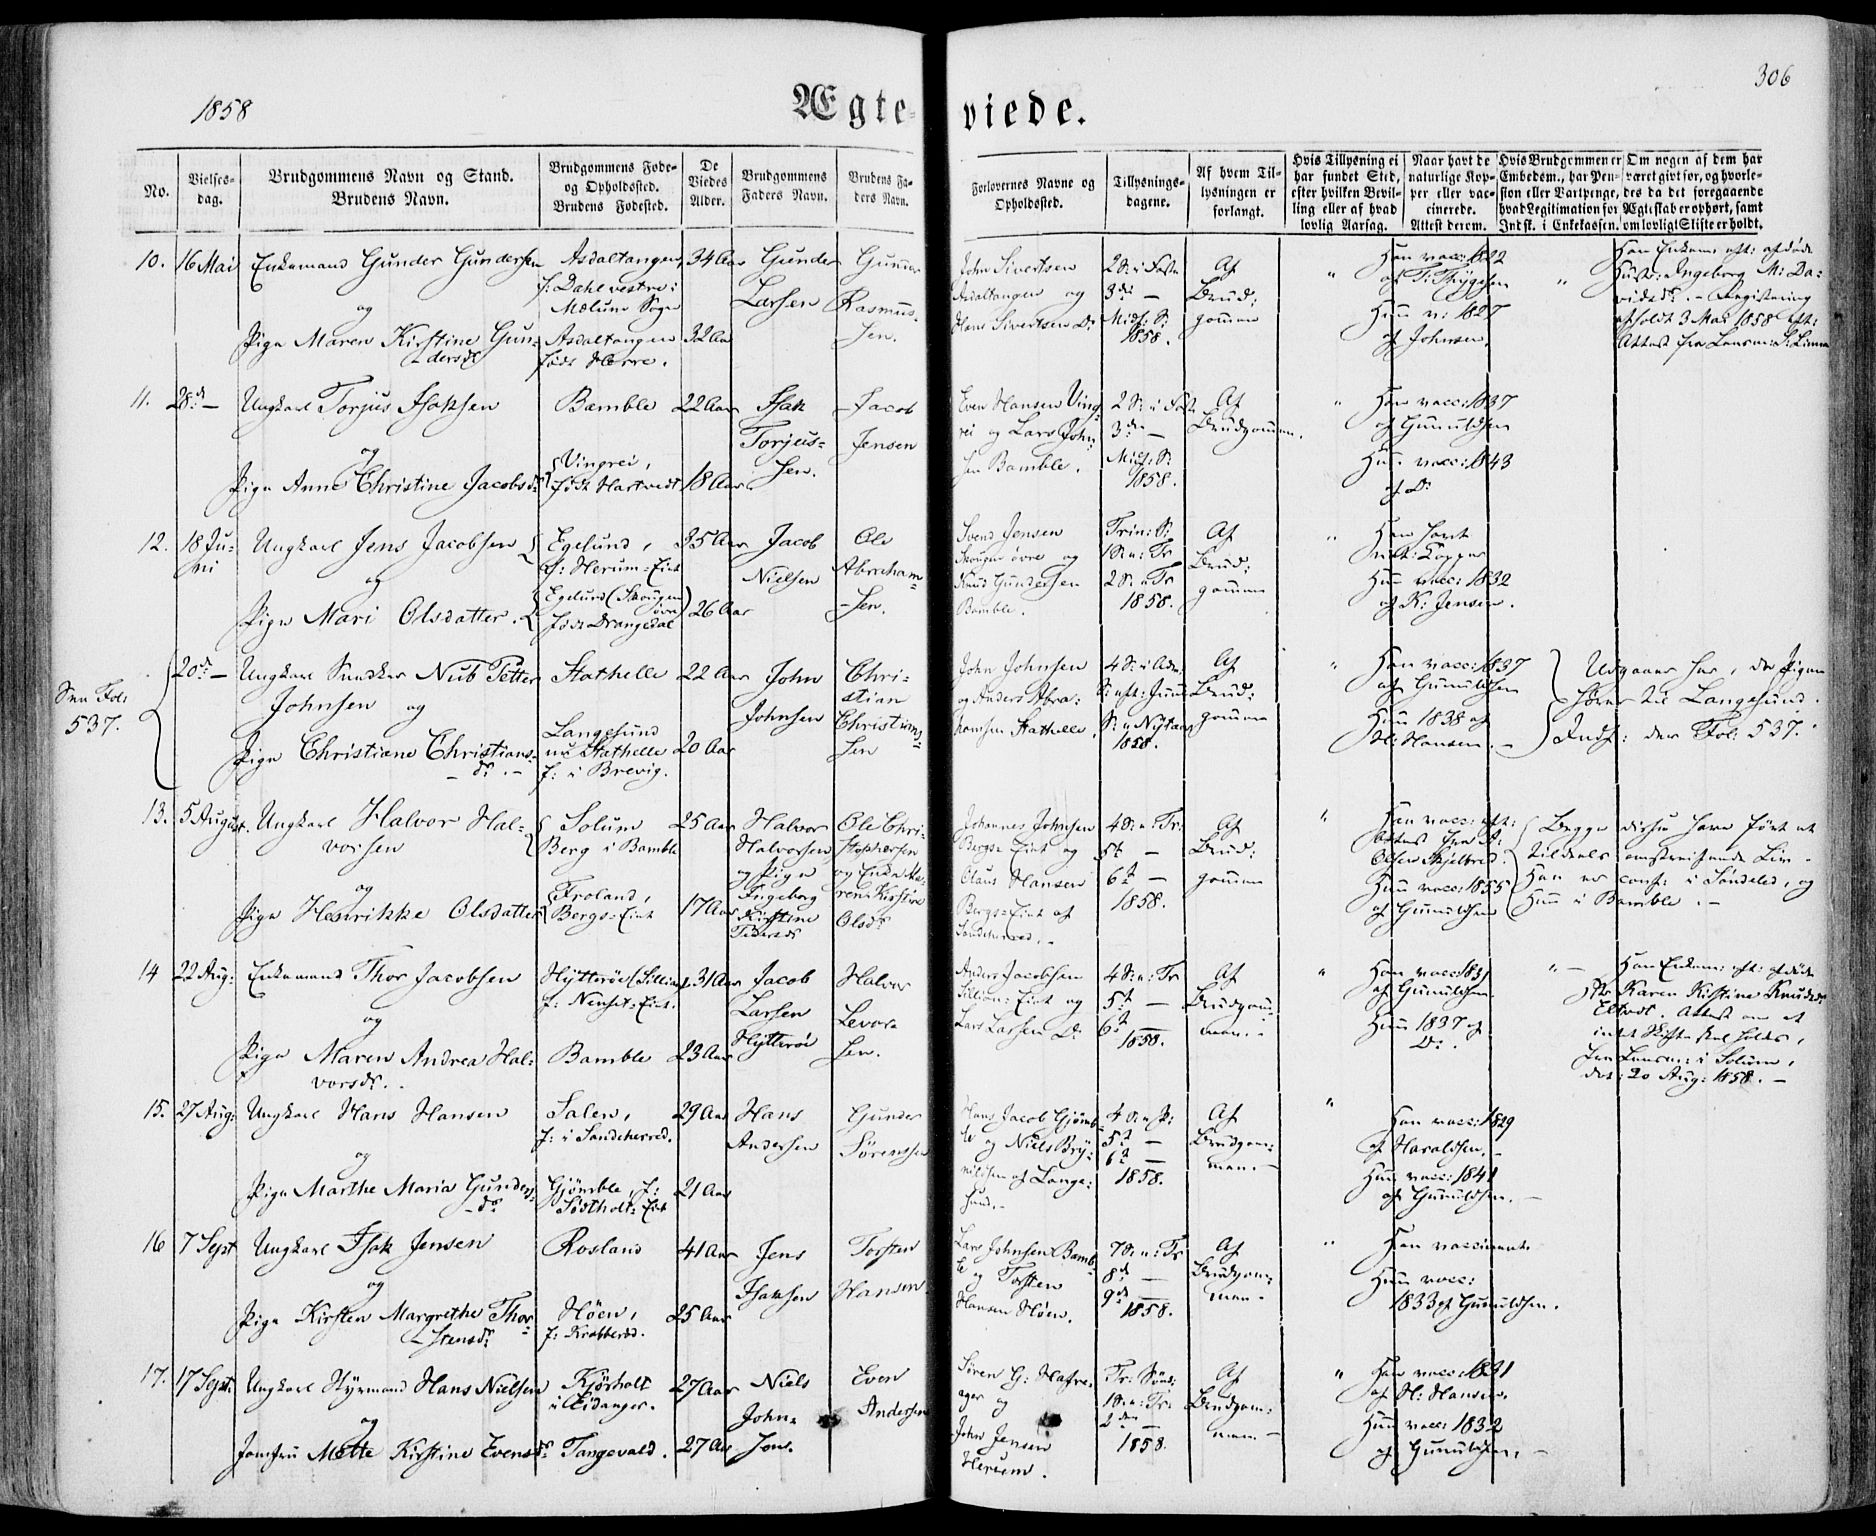 306
1858
Ægte-viede.
No.
Vielses-
dag.
Brudgommens Navn og Stand.
Brudens Navn.
Brudgommens Føde-
og Opholdssted.
Brudens Fødested.
De
Viedes
Alder.
Brudgommens
Faders Navn.
Brudens Fa-
ders Navn.
Forlovernes Navne og
Opholdssted.
Tillysnings-
dagene.
Af hvem Til-
lysningen er
forlangt.
Hvis Tillysning ei
har fundet Sted,
efter hvilken Bevil-
ling eller af hvad
lovlig Aarsag.
Naar havt de
naturlige Kop-
per eller vac-
cinerede.
Attest derom.
Hvis Brudgommen er
Embedsm., har Pen-
sion eller Vartpenge,
hvad Legitimation for
Indsk. i Enkekassen.
Om nogen af dem har
været gift før, og hvorle-
des da det foregaaende
Ægteskab er ophørt, samt
om lovligt Skifte er holdt.
10. 16 Mai Enkemand Gunder Gundersen
og
Pige Maren Kirstine Gun-
dersdr
Asdaltangen,
f: Dahl vestre i
Mælum Sogn
Asdaltangen
født Herre.
34 Aar
32 Aar
Gunder
Larsen
Gunder
Rasmus-
sen.
John Sivertsen
Asdaltangen og
Hans Sivertsen Do
2 S: i Faste
3die —
Midf: S:
1858.
Af
Brud:
gommen
"
Han vacc: 1822
af T: Thygesen
Hun v: 1827
af Johnsen.
"
Han Enkem: eft: afdøde
Hustr: Ingeborg M: Da-
vidsdr. - Registering
afholdt 3 Mai 1858 eft:
Attest fra Lensm: S: Linaae
11. 28de — Ungkarl Torjus Isaksen
og
Pige Anne Christine Jacobsdr
Bamble
Vingrei,
født Hartvedt
22 Aar
18 Aar
Isak
Torjus-
sen.
Jacob
Jensen
Even Hansen Ving-
rei og Lars John-
sen Bamble.
2 S: i Faste
3die —
Midf: S:
1858.
Af
Brudgommen.
"
Han vacc: 1837
af Gunuldsen
Hun vacc: 1843
af Do
12. 18 Ju-
ni
Ungkarl Jens Jacobsen
og
Pige Mari Olsdatter.
Egelund,
f: Herum-Eiet
Egelund (Skougen
øvre)
født Drangedal
35 Aar
26 Aar
Jacob
Nielsen
Ole
Abraham-
sen.
Svend Jensen
Skougen øvre og
Knud Gundersen
Bamble.
Trin: S:
1 S: e: Tr
2 S: e Tr
1858.
Af
Brud:
gommen
"
Han havt
nat: Kopper
Hun vacc: 1832
af K: Jensen.
See Fol:
537.
20de — Ungkarl Snedker Nub Petter
Johnsen og
Pige Christiane Christians-
dr. -
Stathelle
Langesund
nu Stathelle
f: i Brevig.
22 Aar
20 Aar
John
Johnsen
Chri-
stian
Christian-
sen
John Johnsen
og Anders Abra-
hamsen Stathelle.
4 S: i Adv:
S: eft: Juul
S: e Nytaar
1858.
Af
Brud:
gommen
"
Han vacc: 1837
af Gunuldsen
Hun 1838 af
Hansen. -
Udgaaer her, da Pigen
hører til Langesund.
Indf: der Fol: 537.
13. 5 August. Ungkarl Halvor Hal-
vorsen
og
Pige Henrikke Olsdatter
Solum
Berg i Bamble
Froland,
Bergs-Eiet
25 Aar
17 Aar
Halvor
Halvorsen
og Pige
Ingeborg
Kirstine
Pedersdr
Ole Chri-
stophersen
og Enke Ma-
ren Kirstine
Olsdr
Johannes Johnsen
Bergs-Eiet og
Claus Hansen
Bergs-Eiet af
Sandeherred. -
4 S: e: Tr:
5te —
6te —
1858.
Af
Brud:
gommen
"
Han vacc: eft:
Attest fra A:
Olsen Skjelbred.
Hun vacc: 1855
af Gunuldsen
Begge disse have ført et
tildeels omstreifende Liv -
Han er conf: i Søndeled, og
Hun i Bamble. -
14 22 Aug: Enkemand Thor Jacobsen
og
Pige Maren Andrea Hal-
vorsdr.
f: Nenset-Eiet.
Bamble
31 Aar
23 Aar
Jacob
Larsen
Hytterøe
Halvor
Levor-
sen.
Anders Jacobsen
og
Lars Larsen Do
4 S: e: Tr
5te —
6te —
1858.
Af
Brudgom-
men. -
"
Han vacc: 1831
af Gunuldsen.
Hun 1837 af
Do.
" — Han Enkem: eft: afdøde
Karen Kirstine Knudsdr
Attest om at
intet Skifte skal holdes,
fra Lensm: i Solum,
dat: 20 Aug: 1858. -
15. 27 Aug: Ungkarl Hans Hansen
og
Pige Marthe Maria Gunders-
dr
Salen,
f: i Sandeherred.
Gjømble, f:
Sødtholt-Eiet
29 Aar
21 Aar
Hans
Andersen
Gunder
Sørensen
Hans Jacob Gjømb-
le og Niels Bry-
nilsen af Lange-
sund. -
4 S: e P:
5te —
6te —
1858.
Af
Brudgom-
men. -
"
Han vacc: 1829
af Haraldsen. -
Hun vacc: 1841
af Gunuldsen. -
16 7 Sept Ungkarl Isak Jensen
og
Pige Kirsten Margrethe Thor-
stensdr
Rosland
Høen,
f: Krabberød.
41 Aar
25 Aar
Jens
Isaksen
Torsten
Hansen.
Lars Johnsen Bamb-
le og Torsten
Hansen Høen.
7 S: e: Tr
8de —
9de —
1858.
Af
Brudgom-
men -
"
Han vaccineret
Hun vacc:
1833 af Gunuldsen.
17. 17 Sept: Ungkarl Styrmand Hans Nielsen
og
Jomfru Mette Kirstine Evensdr
Kjørholt
i Eidanger.
Tangevald.
27 Aar
27 Aar
Niels
John-
sen.
Even
Andersen
Søren G: Hafre-
ager og
John Jensen
Herum.
Tr: Sønd:
1 S: e: Tr:
2den —
1858.
Af
Brudgom-
men -
"
Han vacc: 1831
af H: Hansen.
Hun vacc: 1832
af Gunuldsen. -